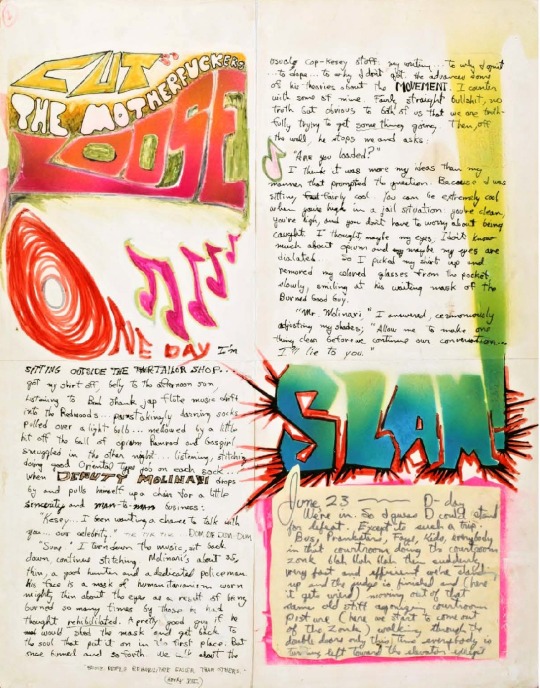 CUT
THE MOTHERFUCKERS
LOOSE
ONE DAY I'm
SITTING OUTSIDE THE TAILOR SHOP...
got my shirt off, belly to the afternoon sun,
listening to Paul jap flute music drift
into the Redwoods... painstakingly darning socks
pulled over a light bulb... mellowed by a little
hit off the ball of opium Ramrod and Gassgirl
smuggled in the other night... listening, stitching
doing good Oriental type job on each sock...
when DEPUTY MOLINARI drops
by and pulls himself up a chair for a little
sincerity and man-to-man business:
"Kesey... I been wanting a chance to talk with
you... our celebrity." DUM-DE-DUM-DUM
"Sure." I turn down the music, sit back
down, continue stitching. Molinari's about 35,
thin, a good hunter and a dedicated policeman.
His face is a mask of humanitarianism worn
mighty thin about the eyes as a result of being
burned so many times by those he had
thought rehabilitated. A pretty good guy if he
would shed the mask and get back to
the soul that put it on in the first place. But
once burned and so-forth. We about the
"SOME ROPES REHABILITATE EASIER THAN OTHERS."
usual cop-Kesey stuff, my writing... to why I quit
... to dope... to why I don't quit. He advances some
of his theories about the MOVEMENT. I counter
with some of mine. Fairly straight bullshit, no
truth but obvious to both of us that we are truth-
fully trying to get something going. Then, off
the wall, he stops me and asks:
"Are you loaded?"
I think it was more my ideas than my
manner that prompted the question. Because I was
sitting fairly cool. You can be extremely cool
when you're high in a jail situation; you're clean,
you're high, and you don't have to worry about being
caught. I thought maybe my eyes, I don't know
much about opium and maybe my eyes are
dialated. So I picked my shirt up and
removed my colored glasses from the pocket,
slowly, smiling at his waiting mask of the
Burned Good Guy.
"Mr. Molinari," I answered, ceremoniously
adjusting my shades; "Allow me to make one
thing clear before we continue our conversation...
I'll lie to you."
SLAM!
June 23 D-day
We're in. So I guess D could stand
for defeat. Except its such a trip.
Bus, Pranksters, Faye, Kids, everybody
in that courtroom doing the courtroom
zonk blah blah blah then suddenly
very fast and efficient we're
up and the judge is finished and (here
it gets weird) moving out of that
same old stiff agonizing courtroom
posture (here we start to come out
of the zonk) walking through the
double doors only this time everybody is
turning left toward the elevator except